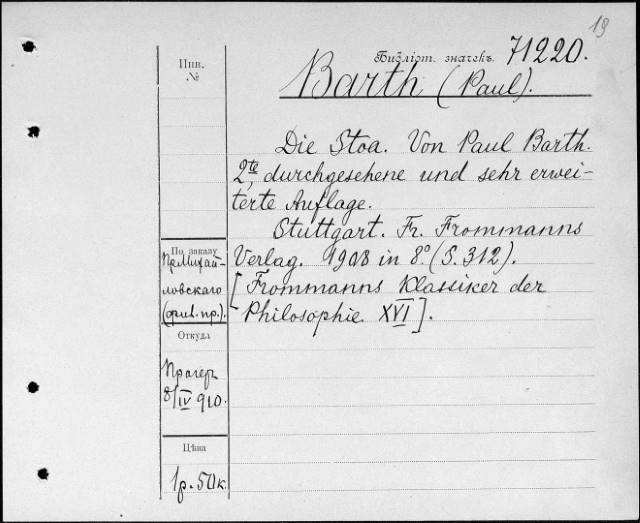 19
Библіот. значекъ. 71220.
Barth (Paul).
Die Stoa. Von Paul Barth.
2te, durchgesehene und sehr erwei-
terte Auflage.
Stuttgart. Fr. Frommanns
Verlag. 1908 in 8°. (S. 312).
[Frommanns Klassiker der
Philosophie XVI].
Инв.
№
По заказу
Пр. Михай-
ловскаго
(фил. пр.).
Откуда
Прагеръ
8/IV 910.
Цѣна
1 р. 50 к.